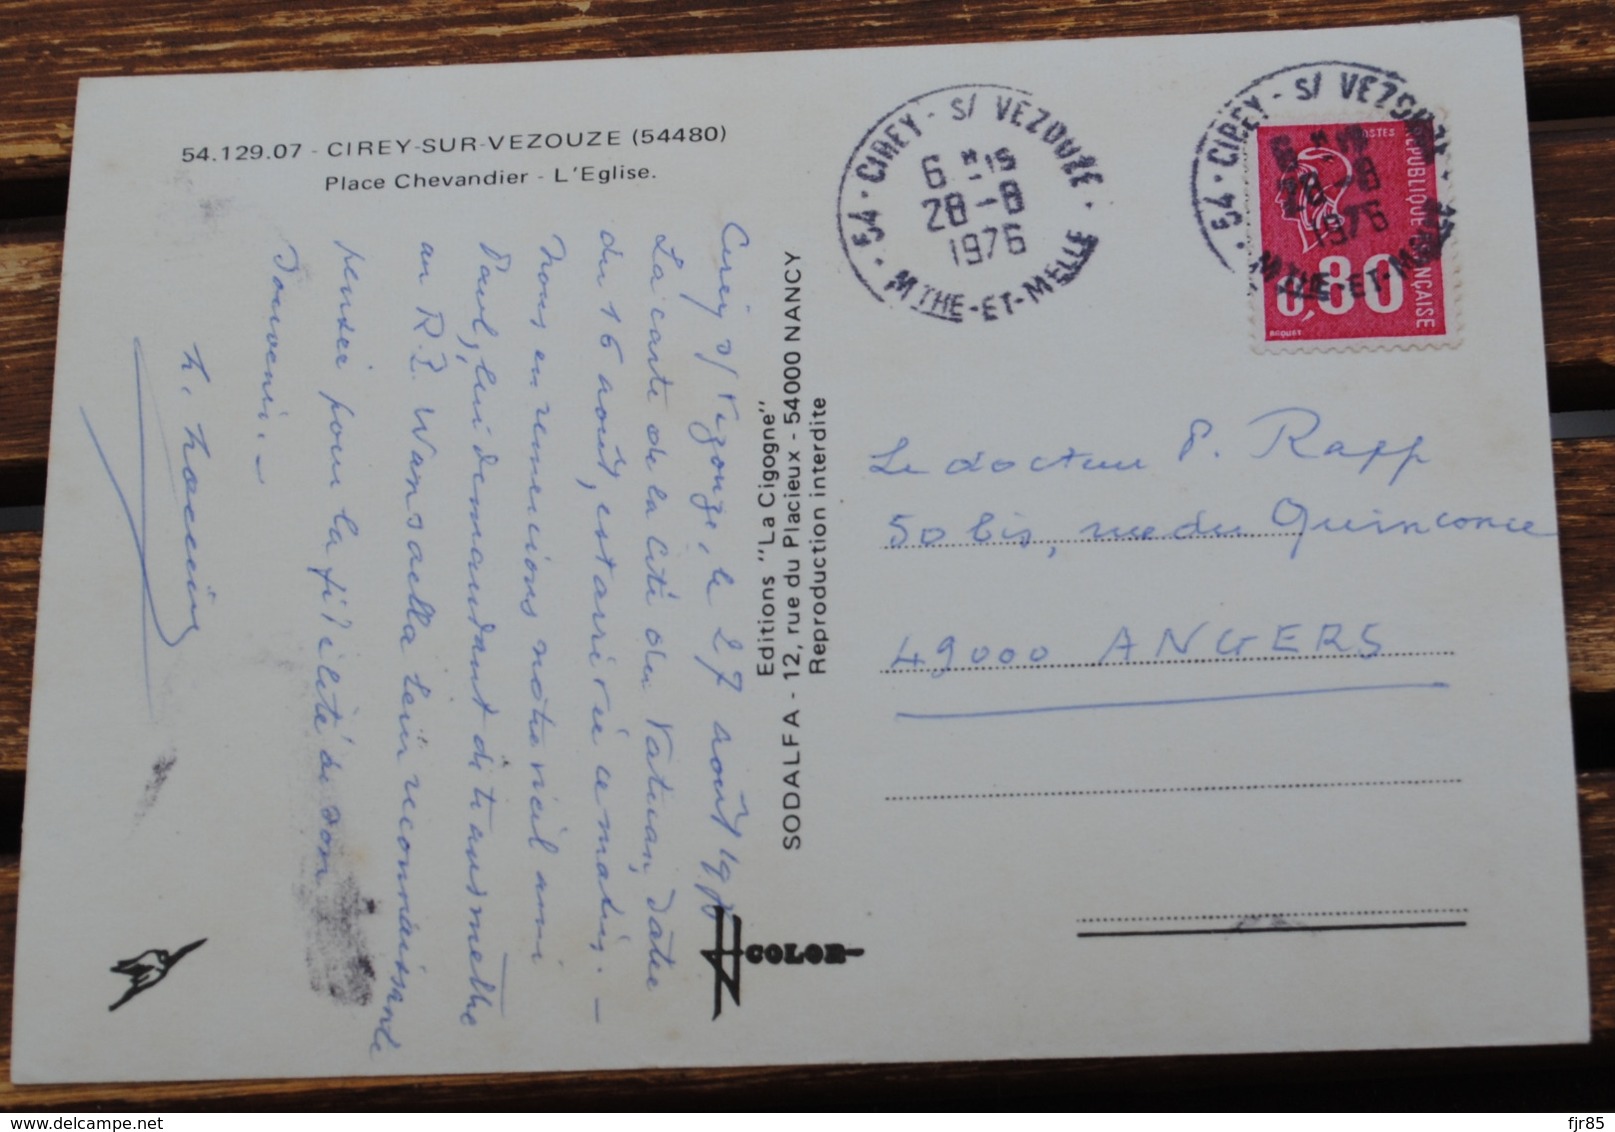 54.129.07 - CIREY-SUR-VEZOUZE (54480)
Place Chevandier - L'Eglise.
Cirey s/ Vezouze, le 27 août 1976
La carte de la cité du Vatican, datée
du 16 août, est arrivée ce matin. -
Nous en remercions notre vieil ami
Paul, lui demandant de transmettre
au R.P. sa reconnaissante
pensée pour la fidélité de son
souvenir. -
Editions "La Cigogne"
SODALFA - 12, rue du Placieux - 54000 NANCY
Reproduction interdite
COLOR
54 - CIREY - S/ VEZOUZE
6 H 15
28 - 8
1976
MTHE-ET-MELLE
54 - CIREY - S/ VEZOUZE
28 - 8
1976
MTHE-ET-MELLE
POSTES
REPUBLIQUE FRANÇAISE
0,80
BEQUET
Le docteur P. Rapp
50 bis, rue du Quinconce
49000 ANGERS
fjr85